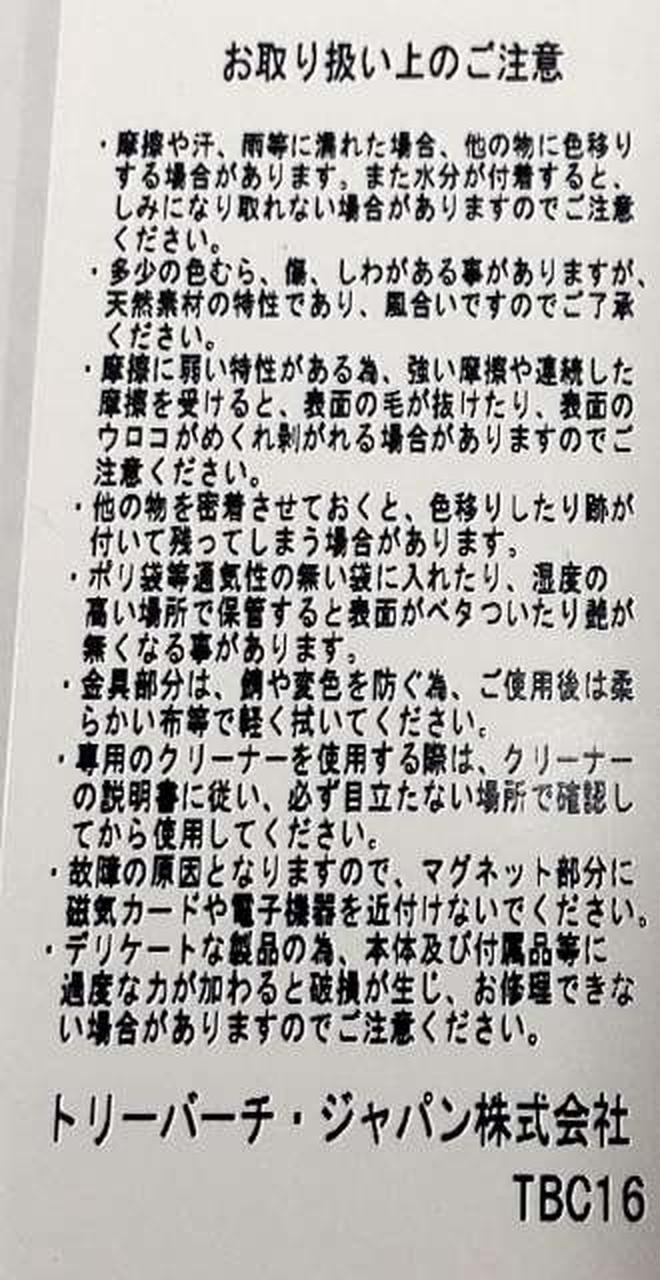 お取り扱い上のご注意
・摩擦や汗、雨等に濡れた場合、他の物に色移り
する場合があります。また水分が付着すると、
しみになり取れない場合がありますのでご注意
ください。
・多少の色むら、傷、しわがある事がありますが、
天然素材の特性であり、風合いですのでご了承
ください。
・摩擦に弱い特性がある為、強い摩擦や連続した
摩擦を受けると、表面の毛が抜けたり、表面の
ウロコがめくれ剝がれる場合がありますのでご
注意ください。
・他の物を密着させておくと、色移りしたり跡が
付いて残ってしまう場合があります。
・ポリ袋等通気性の無い袋に入れたり、湿度の
高い場所で保管すると表面がベタついたり艶が
無くなる事があります。
・金具部分は、錆や変色を防ぐ為、ご使用後は柔
らかい布等で軽く拭いてください。
・専用のクリーナーを使用する際は、クリーナー
の説明書に従い、必ず目立たない場所で確認し
てから使用してください。
・故障の原因となりますので、マグネット部分に
磁気カードや電子機器を近付けないでください。
・デリケートな製品の為、本体及び付属品等に
過度な力が加わると破損が生じ、お修理できな
い場合がありますのでご注意ください。
トリーバーチ・ジャパン株式会社
TBC16